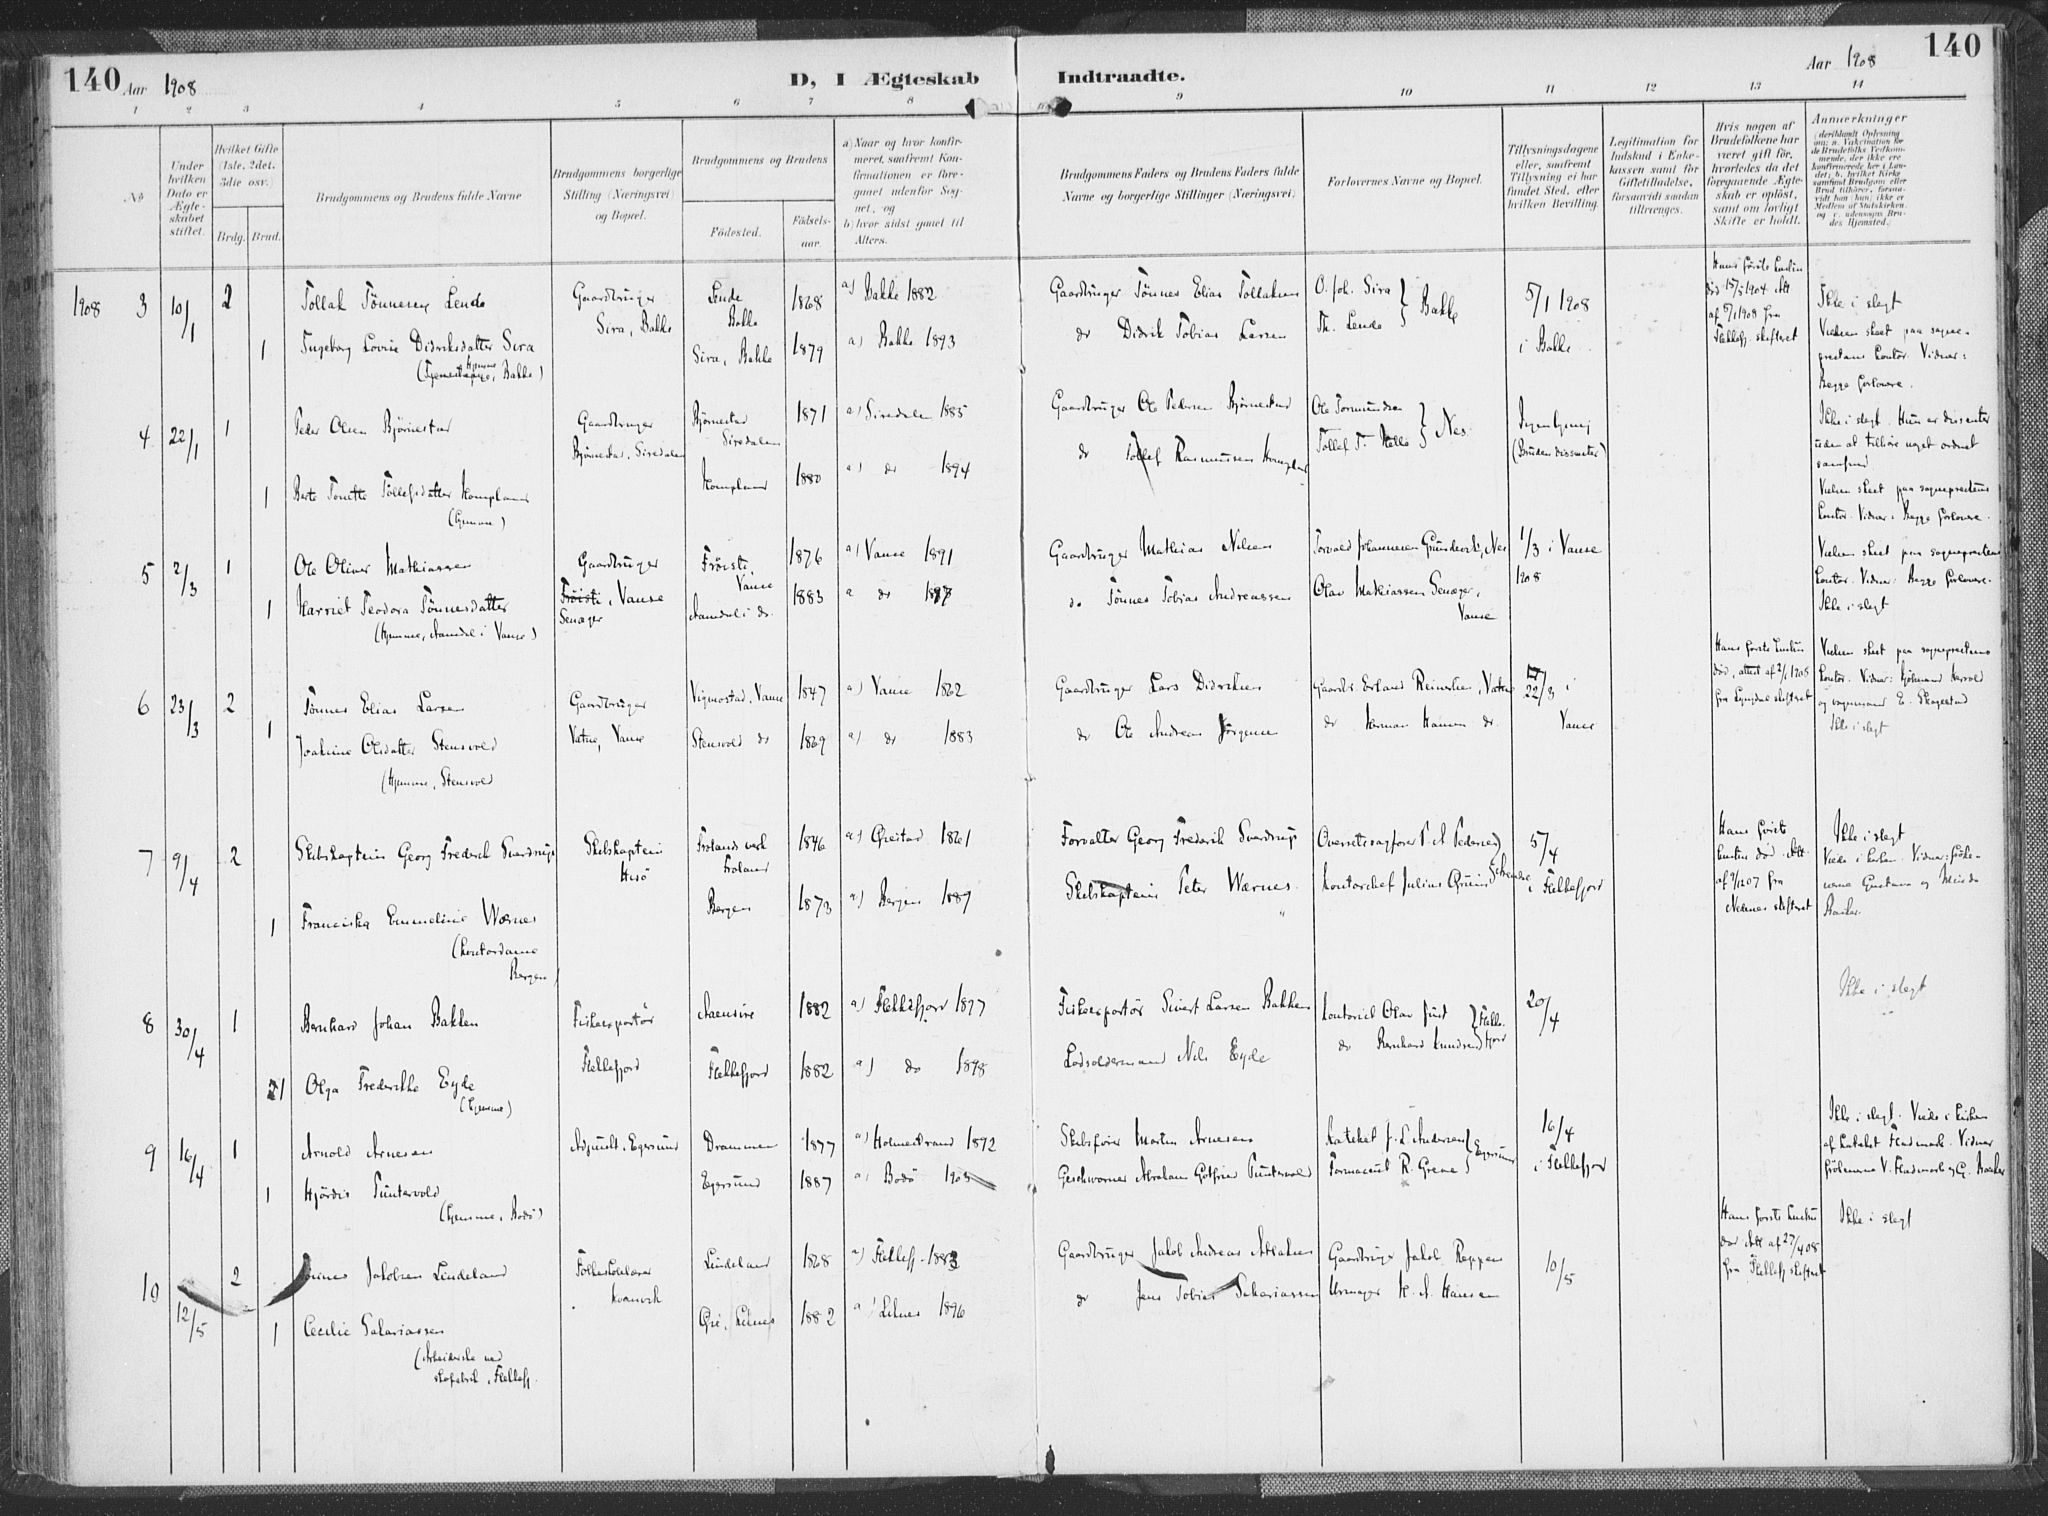 140 Aar 1908
D, I Ægteskab
Indtraadte.
Aar 1908 140
1 2 3 4 5 6 7 8 9 10 11 12 13 14
No
Under hvilken Dato er Ægteskabet stiftet.
Hvilket Gifte (1ste, 2det, 3die osv.)
Brdg. Brud.
Brudgommens og Brudens fulde Navne
Brudgommens borgerlige Stilling (Næringsvei) og Bopæl.
Brudgommens og Brudens
Födested.
Födselsaar.
a) Naar og hvor konfirmeret, saafremt Konfirmationen er foregaaet udenfor Sognet, og
b) hvor sidst gaaet til Alters.
Brudgommens Faders og Brudens Faders fulde Navne og borgerlige Stillinger (Næringsvei)
Forlovernes Navne og Bopæl.
Tillysningsdagene eller, saafremt Tillysning ei har fundet Sted, efter hvilken Bevilling.
Legitimation for Indskud i Enkekassen samt for Giftetilladelse, forsaavidt saadan tiltrænges.
Hvis nogen af Brudefolkene har været gift för, hvorledes da det foregaaende Ægteskab er oplöst, samt om lovligt Skifte er holdt.
Anmerkninger
1908 3 10/1 2
Tollak Tönnesen Lende
Gaardbruger
Sira, Bakke
Lende
Bakke
1868
a) Bakke 1882
Gaardbruger Tönnes Elias Tollaksen
O. Joh. Sira
Th. Lende
Bakke
5/1 1908
i Bakke
Hans förste hustru
död 15/5 1904. Att
af 5/1 1908 fra
Flekkefj. skifteret
Ikke i slegt
Vielsen skeet paa sogneprestens kontor. Vidner:
Begge forlovere.
1
Ingeborg Lovise Didriksdatter Sira
Sira, Bakke
1879
a) Bakke 1893
do Didrik Tobias Larsen
4 22/1 1
Peder Olsen Björnestad
Gaardbruger
Björnestad, Siredalen
Björnestad
Siredalen
1871
a) Siredalen 1885
Gaardbruger Ole Pedersen Björnestad
Ole Tormundsen
Tollef T. Helle
Nes.
(Bruden dissenter)
Ikke i slegt. Hun er dissenter
uden at tilhöre noget ordnet
samfund
Vielsen skeet paa sogneprestens
kontor. Vidner: Begge forlovere.
1
Berte Tonette Tollefsdatter Hompland
(hjemme)
Hompland
1880
a) do 1894
do Tollef Rasmussen Hompland
5 2/3 1
Ole Oliver Mathiassen
Gaardbruger
Fröisti, Vanse
Fröisti,
Vanse
1876
a) Vanse 1891
Gaardbruger Mathias Nilsen
Olav Mathiassen
Vanse
1/3 i Vanse
1908
Vielsen skeet paa sogneprestens
kontor. Vidner: Begge forlovere.
Ikke i slegt
1
Harriet Teodora Tönnesdatter
(hjemme, Aamdal i Vanse)
Aamdal i do
1883
a do 1897
do Tönnes Tobias Andreassen
6 23/3 2
Tönnes Elias Larsen
Gaardbruger
Vatne, Vanse
Vigmostad, Vanse
1847
a) Vanse 1862
Gaardbruger Lars Didriksen
do Herman Hansen do
22/3 i
Vanse
Hans förste hustru
död, attest af 2/1 1905
fra Lyngdal skifteret
Vielsen skeet paa sogneprestens
kontor.
Ikke i slegt
1
Joakine Olsdatter Stensvold
(hjemme, Stensvold
Stensvold do
1869
a) do 1883
do Ole Andreas Jörgensen
7 9/4 2
Skibskaptein Georg Frederik Svardrup
Skibskaptein
Hisö
Frolands verk
Froland
1846
a) Öiestad 1861
Forvalter Georg Frederik Svardrup
Overretssagförer P. A. Pedersen
Kontorchef Julius Gruin
5/4
i Flekkefjord
Hans förste
hustru död. Att
af 9/12 07 fra
Nedenes skifteret
Ikke i slegt
1
Franciska Emmeline Wærnes
(kontordame
Bergen)
Bergen
1873
a) Bergen 1889
Skibskaptein Peter Wærnes.
8 30/4 1
Bernhard Johan Bakken
Fiskeexportör
Flekkefjord
Aaensire
1882
a) Flekkefjord 1897
Fiskeexportör Sivert Larsen Bakken
do Bernhard Knudsen
Flekkefjord
20/4
Ikke i slegt
1
Olga Frederikke Eyde
(hjemme)
Flekkefjord
1882
a) do 1898
Lodsoldermand Nils Eyde
9 16/4 1
Arnold Arnesen
Adjunkt, Egersund
Drammen
1877
a) Holmestrand 1892
Skibsförer Morten Arnesen
Kateket J. L. Andersen
Farmaceut R. Greve
Egersund
16/4
i Flekkefjord
Ikke i slegt. Viede i kirken
af kateket Fladmark. Vidner
frökenerne V. Fladmark og G. Baaker
1
Hjördis Puntervold
(hjemme, Bodö)
Egersund
1887
a) Bodö 1903
Geschworner Abraham Gotfried Puntervold
10 12/5 2
Tönnes Jakobsen Lindeland
Folkeskolelærer
Kvanvik
Lindeland
1868
a) Flekkefj. 1883
Gaardbruger Jakob Andreas Ablaksen
Gaardbruger Jakob Reppen
Urmager H. A. Hansen
10/5
Hans förste hustru
död Att af 27/4 08
fra Flekkefj skifteret
Ikke i slegt
1
Cecilie Sakariassen
(Arbeiderske ved
skofabrik, Flekkefj.
Öie, Liknes
1882
a) Liknes 1896
do Jens Tobias Sakariassen